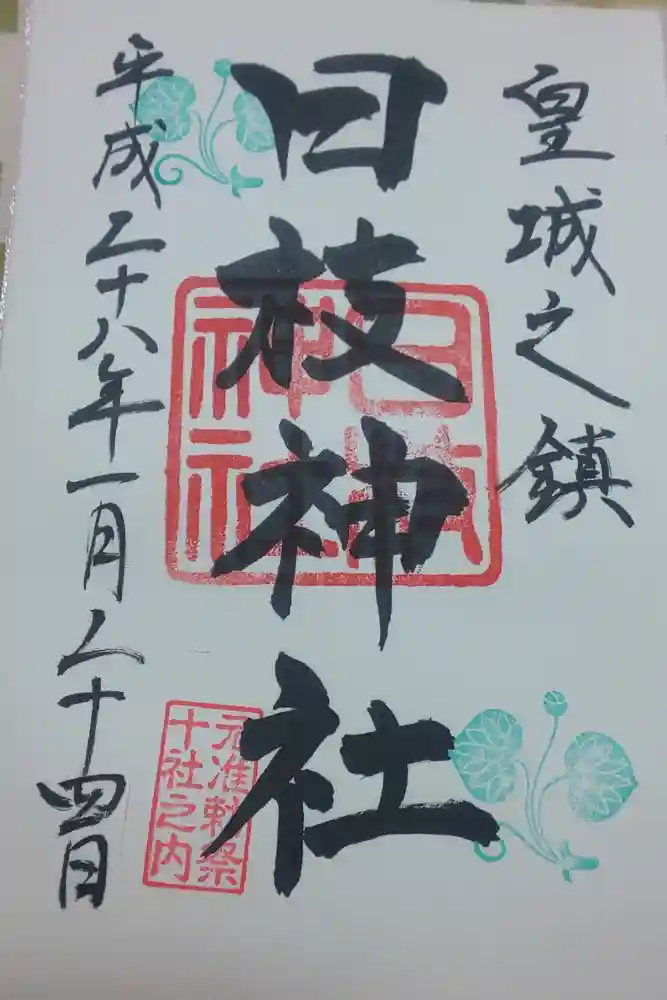 皇城之鎮
日枝神社
日枝
神社
元准勅祭
十社之内
平成二十八年一月二十四日